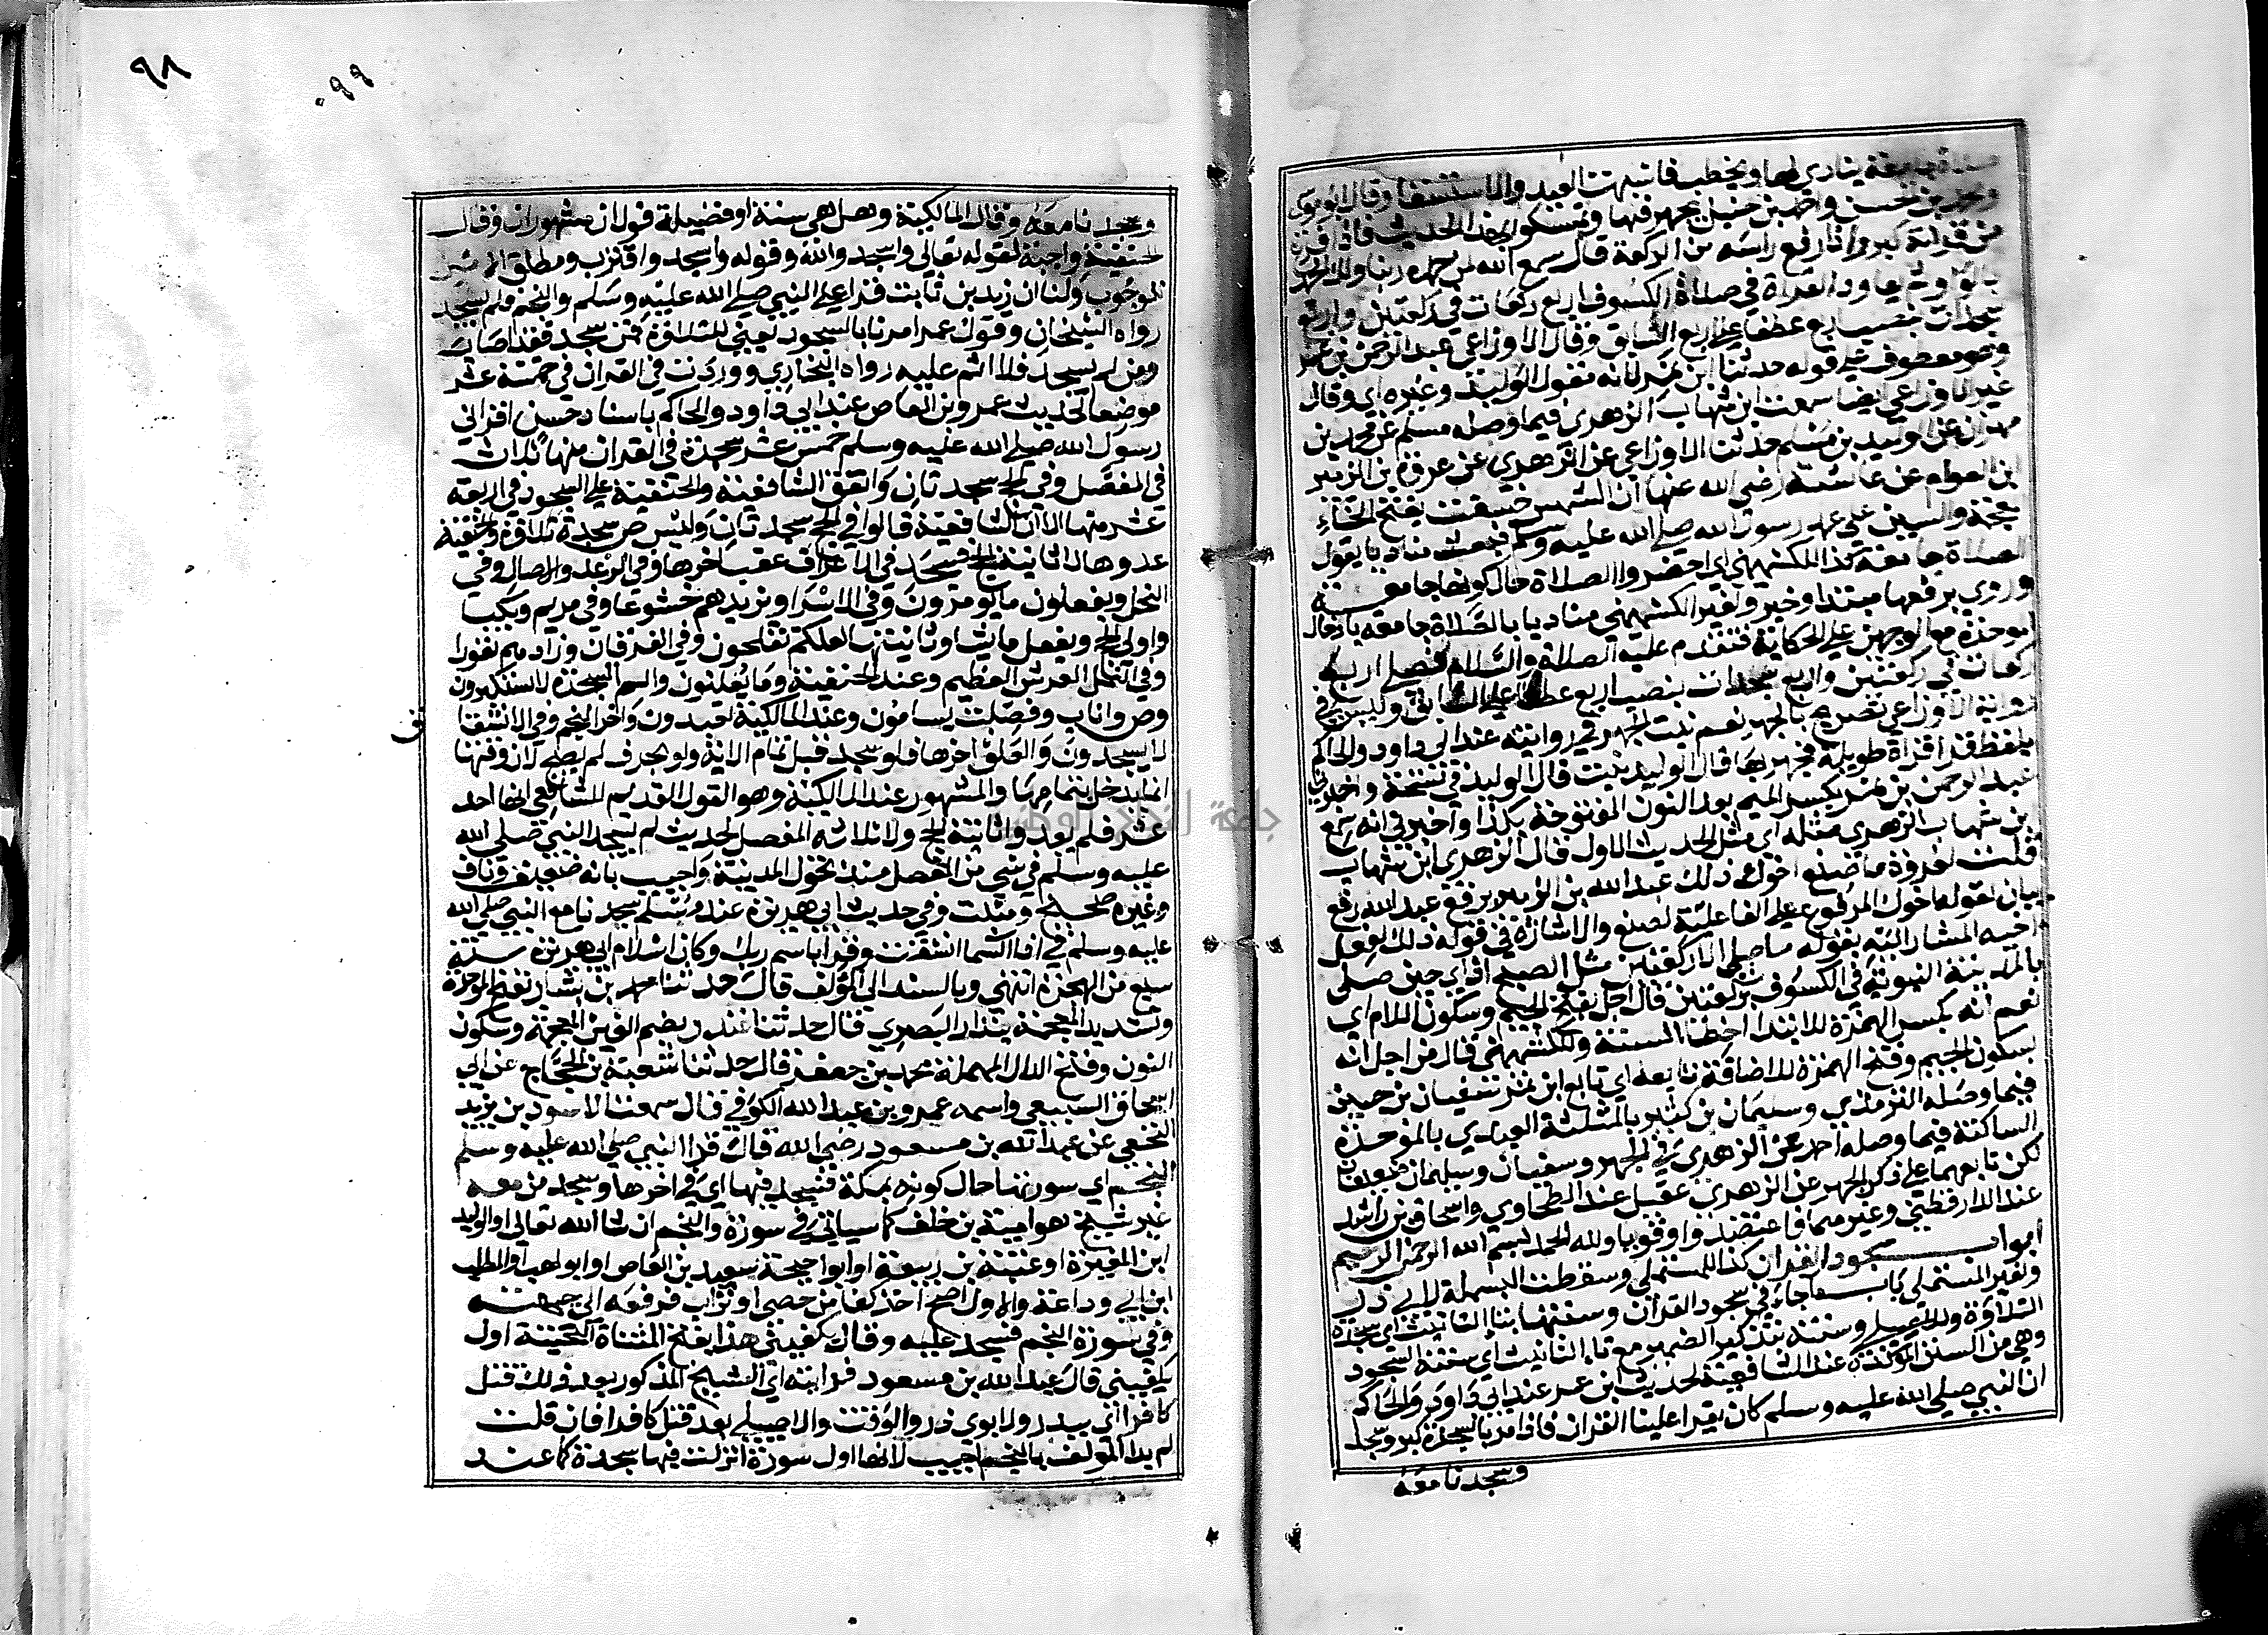 جامعة ينادي لها ويخطب فاشبهت العيد والاستسقا وقال ابو يوسف
ومحمد بن الحسن واحمد بن حنبل يجهر فيها وتمسكوا بهذا الحديث فاذا فرغ
من قرااته كبر واذا رفع راسه من الركعة قال سمع الله لمن حمده ربنا ولك الحمد
بالواو ثم يعاود القراة في صلاة الكسوف اربع ركعات في ركعتين واربع
سجدات بنصب اربع عطفا على اربع السابق وقال الاوزاعي عبد الرحمن بن عمرو
وهو معطوف على قوله حدثنا ابن نمر لانه مقول الوليد وغيره اي وقال
غير الاوزاعي ايضا سمعت ابن شهاب الزهري فيما وصله مسلم عن محمد بن
مهران عن الوليد بن مسلم حدثنا الاوزاعي عن الزهري عن عروة بن الزبير
ابن العوام عن عائشة رضي الله عنها ان الشمس خسفت بفتح الخاء
عجمة والسين على عهد رسول الله صلى الله عليه وسلم فبعث مناديا يقول
الصلاة جامعة كذا للكشميهني اي احضروا الصلاة حال كونها جامعة
وروي برفعها مبتدا وخبر ولغير الكشميهني مناديا بالصلاة جامعة بادخال
الموحدة مع الوجهين على الحكاية فتقدم عليه الصلاة والسلام فصلى اربع
ركعات في ركعتين واربع سجدات بنصب اربع عطفا على السابق وليس في
رواية الاوزاعي تصريح بالجهر نعم ثبت الجهر في روايته عند ابي داود والحاكم
بلفظ قرا قراة طويلة فجهر بها قال الوليد بن مسلم في نسخة واخبرني
عبد الرحمن بن نمر بكسر الميم بعد النون المفتوحة بكذا واخبرني انه سمع
ابن شهاب الزهري مثله اي مثل الحديث الاول قال الزهري ابن شهاب
فقلت لعروة ما صنع اخوك ذلك عبد الله بن الزبير برفع عبد الله رفع
بيان لقوله اخوك المرفوع على الفاعلية لصنع والاشارة في قوله ذلك لفعل
اخيه المشار اليه بقوله ما صلى الا ركعتين مثل الصبح اذ اي حين صلى
بالمدينة النبوية في الكسوف ركعتين قال اجل بفتح الجيم وسكون اللام اي
نعم انه بكسر الهمزة للابتدا اخطا السنة وللكشميهني قال من اجل انه
بسكون الجيم وفتح الهمزة للاضافة تابعه اي تابع ابن نمر سفيان بن حسين
فيما وصله الترمذي وسليمان بن كثير بالمثلثة العبدي بالموحدة
الساكنة فيما وصله احمد عن الزهري في الجهر وسفيان وسليمان ضعيفان
لكن تابعهما على ذكر الجهر عن الزهري عقيل عند الطحاوي واسحاق بن راشد
عند الدارقطني وغيرهما فاعتضدوا وقويا ولله الحمد بسم الله الرحمن الرحيم
ابواب سجود القران كذا للمستملي وسقطت البسملة لابي ذر
ولغير المستملي باب ما جاء في سجود القران وسنتها بتا التانيث اي سجدة
التلاوة وللاصيلي وسنته بتذكير الضمير مع تاء التانيث اي سنة السجود
وهي من السنن المؤكدة عند الشافعية لحديث ابن عمر عند ابي داود والحاكم
ان النبي صلى الله عليه وسلم كان يقرا علينا القران فاذا مر بالسجدة كبر وسجد
وسجدنا معه
٩٨
٠٩٩
وسجدنا معه وقال المالكية وهل هي سنة او فضيلة قولان مشهوران وقال
الحنفية واجبة لقوله تعالى واسجدوا لله وقوله واسجد واقترب ومطلق الامر
للوجوب ولنا ان زيد بن ثابت قرا على النبي صلى الله عليه وسلم والنجم فلم يسجد
رواه الشيخان وقول عمر امرنا بالسجود يعني للتلاوة فمن سجد فقد اصاب
ومن لم يسجد فلا اثم عليه رواه البخاري ووردت في القران في خمسة عشر
موضعا لحديث عمرو بن العاص عند ابي داود والحاكم باسناد حسن اقراني
رسول الله صلى الله عليه وسلم خمس عشر سجدة في القران منها ثلاث
في المفصل وفي الحج سجدتان واتفق الشافعية والحنفية على السجود في اربعة
عشر منها الا ان الشافعية قالوا في الحج سجدتان وليس ص سجدة تلاوة والحنفية
عدوها لا ثانية الحج فيسجد في الاعراف عقب اخرها وفي الرعد والاصال وفي
النحل ويفعلون ما يومرون وفي الاسرا ويزيدهم خشوعا وفي مريم وبكيا
واولى الحج ويفعل ما يشا وثانيتها لعلكم تفلحون وفي الفرقان وزادهم نفورا
وفي النمل العرش العظيم وعند الحنفية وما يعلنون والم السجدة لا يستكبرون
وص واناب وفصلت يسامون وعند المالكية تعبدون واخر النجم وفي الانشقا
ق
لا يسجدون والعلق اخرها فلو سجد قبل تمام الاية ولو بحرف لم يصح لان وقتها
انما يدخل بتمامها والمشهور عند المالكية وهو القول القديم للشافعي انها احد
عشر فلم يعدوا ثانية الحج ولا ثلاثة المفصل لحديث لم يسجد النبي صلى الله
عليه وسلم في شي من المفصل منذ تحول المدينة واجيب بانه ضعيف وناف
وغيره صحيح ومثبت وفي حديث ابي هريرة عند مسلم سجدنا مع النبي صلى الله
عليه وسلم في اذا السما انشقت واقرا باسم ربك وكان اسلام ابي هريرة سنة
سبع من الهجرة انتهى وبالسند الى المؤلف قال حدثنا محمد بن بشار بفتح الموحدة
وتشديد المعجمة بندار البصري قال حدثنا غندر بضم الغين المعجمة وسكون
النون وفتح الدال المهملة محمد بن جعفر قال حدثنا شعبة بن الحجاج عن ابي
اسحاق السبيعي واسمه عمرو بن عبد الله الكوفي قال سمعت الاسود بن يزيد
النخعي عن عبد الله بن مسعود رضي الله قال قرا النبي صلى الله عليه وسلم
النجم اي سورتها حال كونه بمكة فسجد فيها اي في اخرها وسجد من معه
غير شيخ هو امية بن خلف كما سياتي في سورة والنجم ان شا الله تعالى او الوليد
ابن المغيرة او عتبة بن ربيعة او ابو احيحة سعيد بن العاص او ابو لهب او المطلب
ابن ابي وداعة والاول اصح اخذ كفا من حصى او تراب فرفعه الى جبهته
وفي سورة النجم فسجد عليه وقال يكفيني هذا بفتح المثناة التحتية اول
يكفيني قال عبد الله بن مسعود فرايته اي الشيخ المذكور بعد ذلك قتل
كافرا اي ببدر ولابوي ذر والوقت والاصيلي بعد قتل كافرا فان قلت
لم بدا المؤلف بالنجم اجيب لانها اول سورة انزلت فيها سجدة كما عند